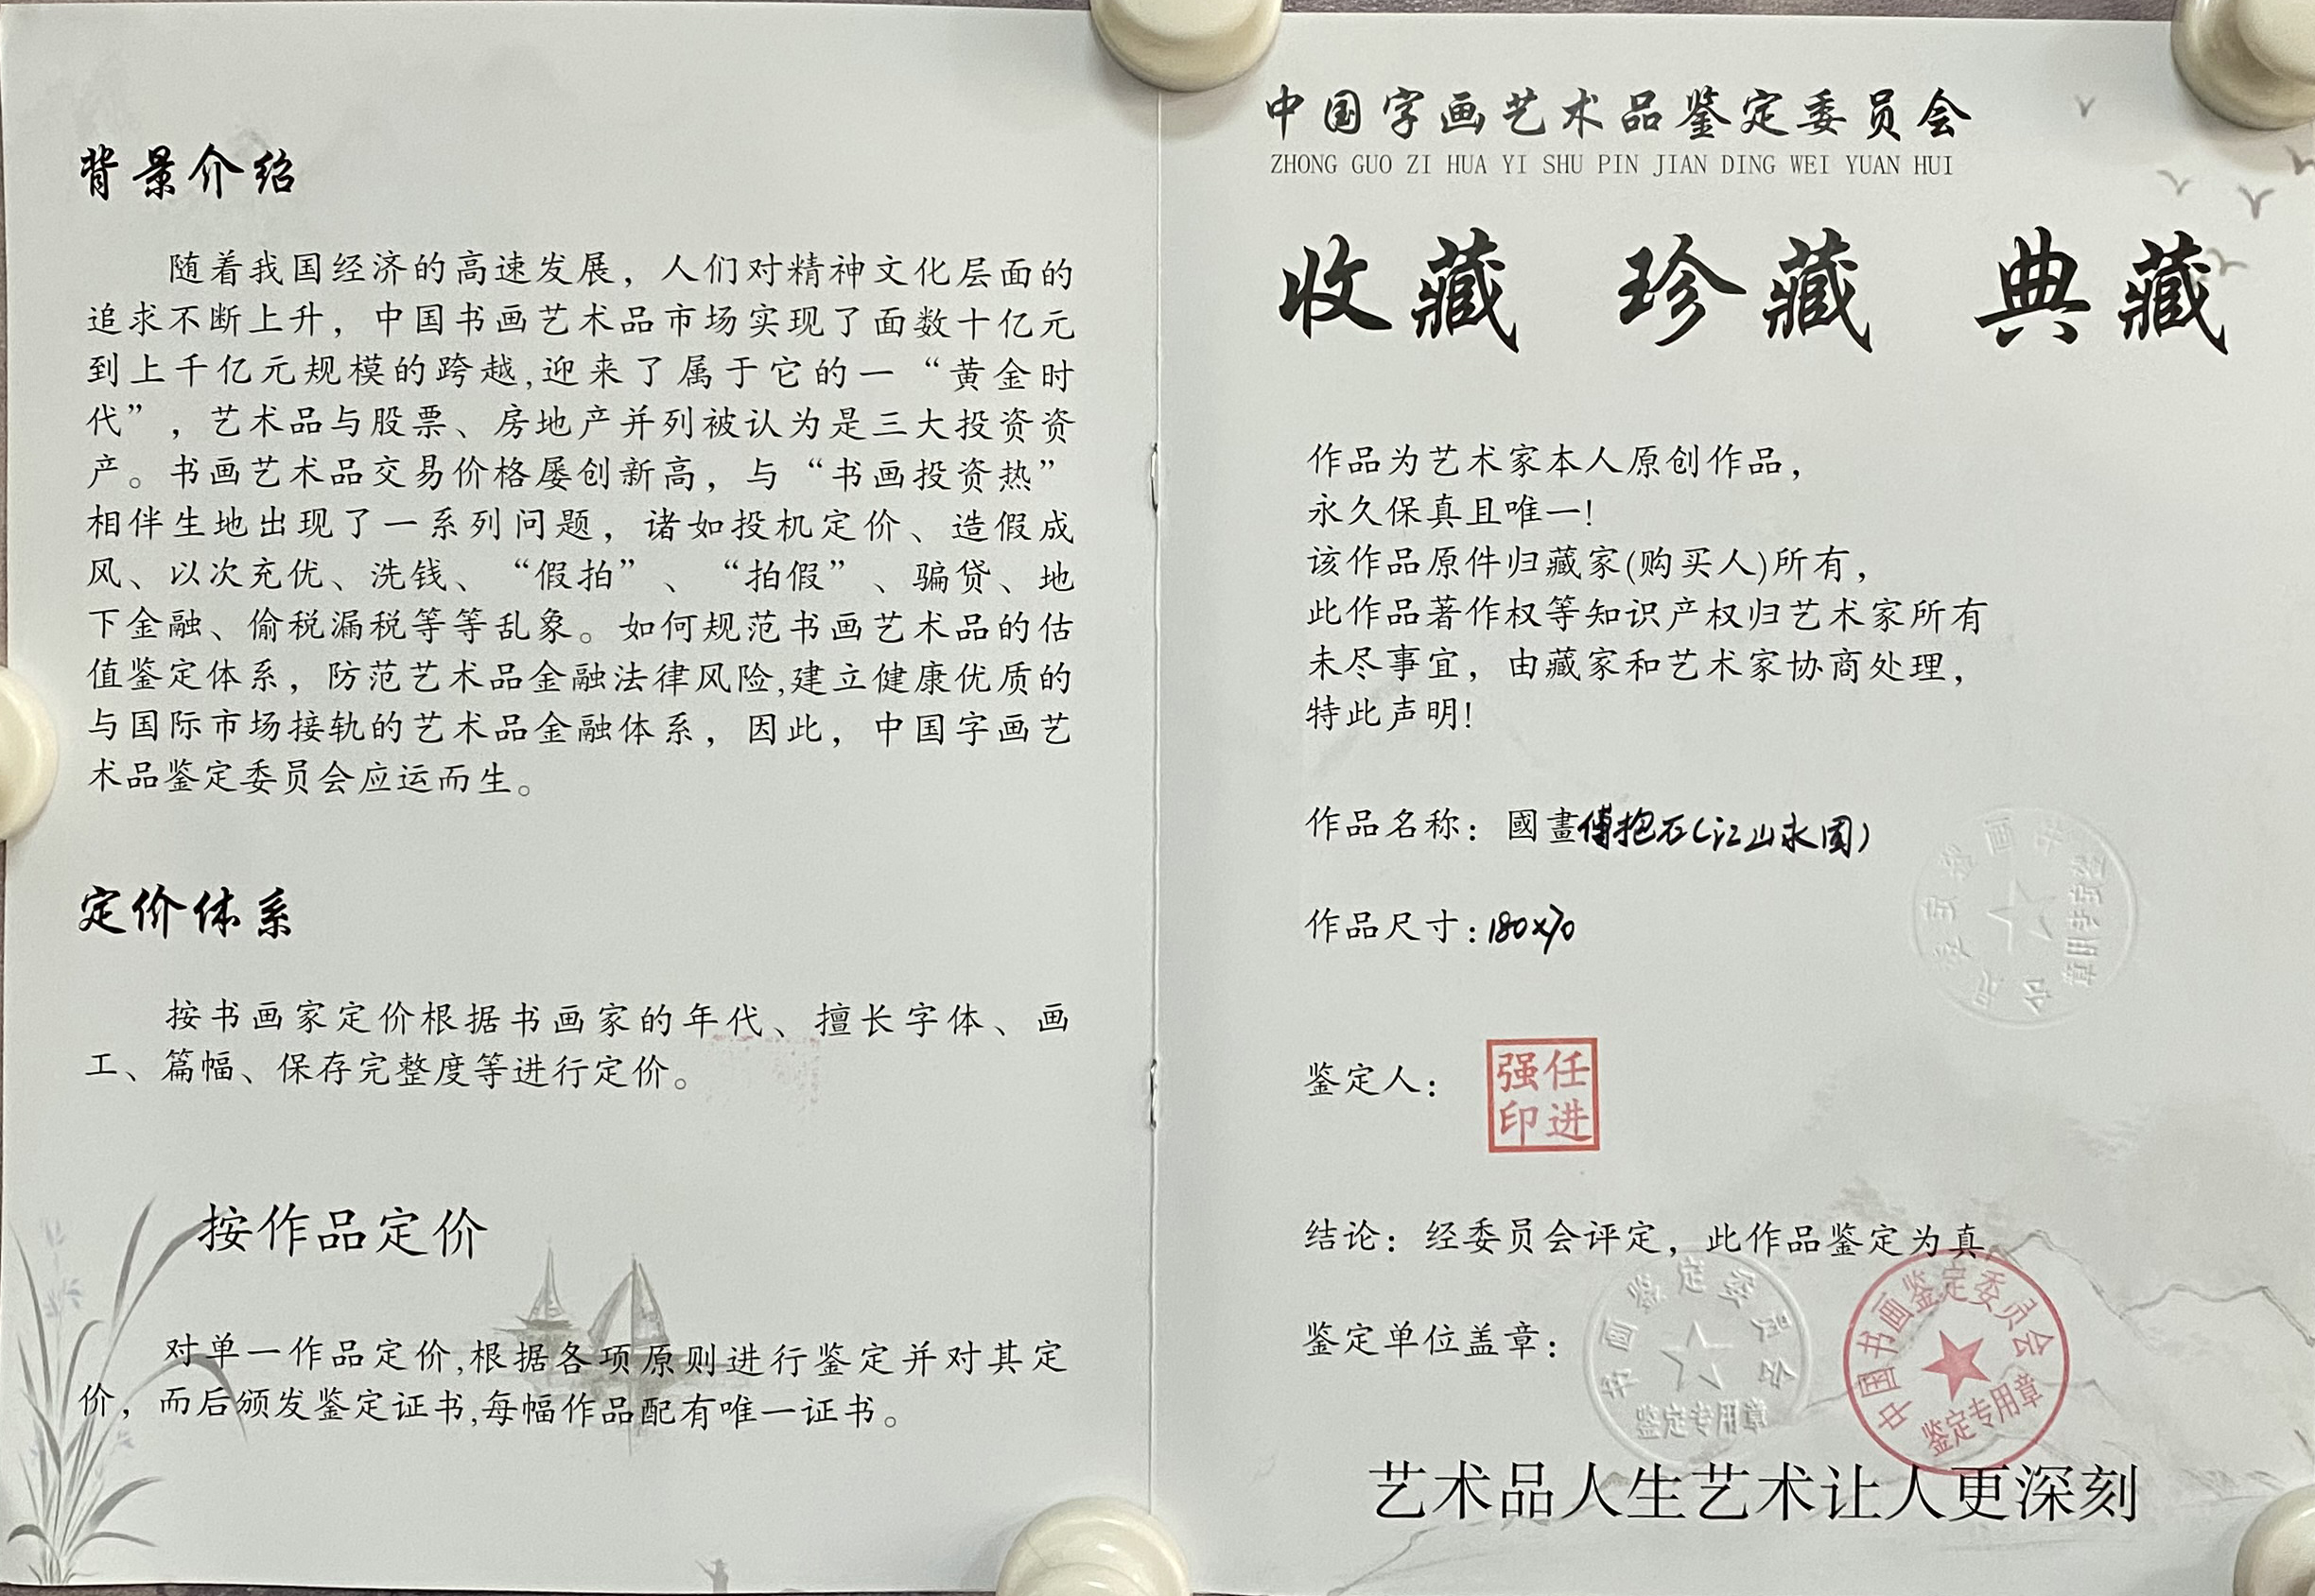 背景介绍
随着我国经济的高速发展，人们对精神文化层面的
追求不断上升，中国书画艺术品市场实现了面数十亿元
到上千亿元规模的跨越,迎来了属于它的一“黄金时
代”，艺术品与股票、房地产并列被认为是三大投资资
产。书画艺术品交易价格屡创新高，与“书画投资热”
相伴生地出现了一系列问题，诸如投机定价、造假成
风、以次充优、洗钱、“假拍”、“拍假”、骗贷、地
下金融、偷税漏税等等乱象。如何规范书画艺术品的估
值鉴定体系，防范艺术品金融法律风险,建立健康优质的
与国际市场接轨的艺术品金融体系，因此，中国字画艺
术品鉴定委员会应运而生。
定价体系
按书画家定价根据书画家的年代、擅长字体、画
工、篇幅、保存完整度等进行定价。
按作品定价
对单一作品定价,根据各项原则进行鉴定并对其定
价，而后颁发鉴定证书,每幅作品配有唯一证书。
中国字画艺术品鉴定委员会
ZHONG GUO ZI HUA YI SHU PIN JIAN DING WEI YUAN HUI
收藏 珍藏 典藏
作品为艺术家本人原创作品，
永久保真且唯一!
该作品原件归藏家(购买人)所有，
此作品著作权等知识产权归艺术家所有
未尽事宜，由藏家和艺术家协商处理，
特此声明!
作品名称：國畫傅抱石(江山水图)
作品尺寸:180×70
书画鉴定委员会
鉴定专用章
鉴定人：
任进强印
结论：经委员会评定，此作品鉴定为真
鉴定单位盖章：
书画鉴定委员会
鉴定专用章
中国书画鉴定委员会
鉴定专用章
艺术品人生艺术让人更深刻